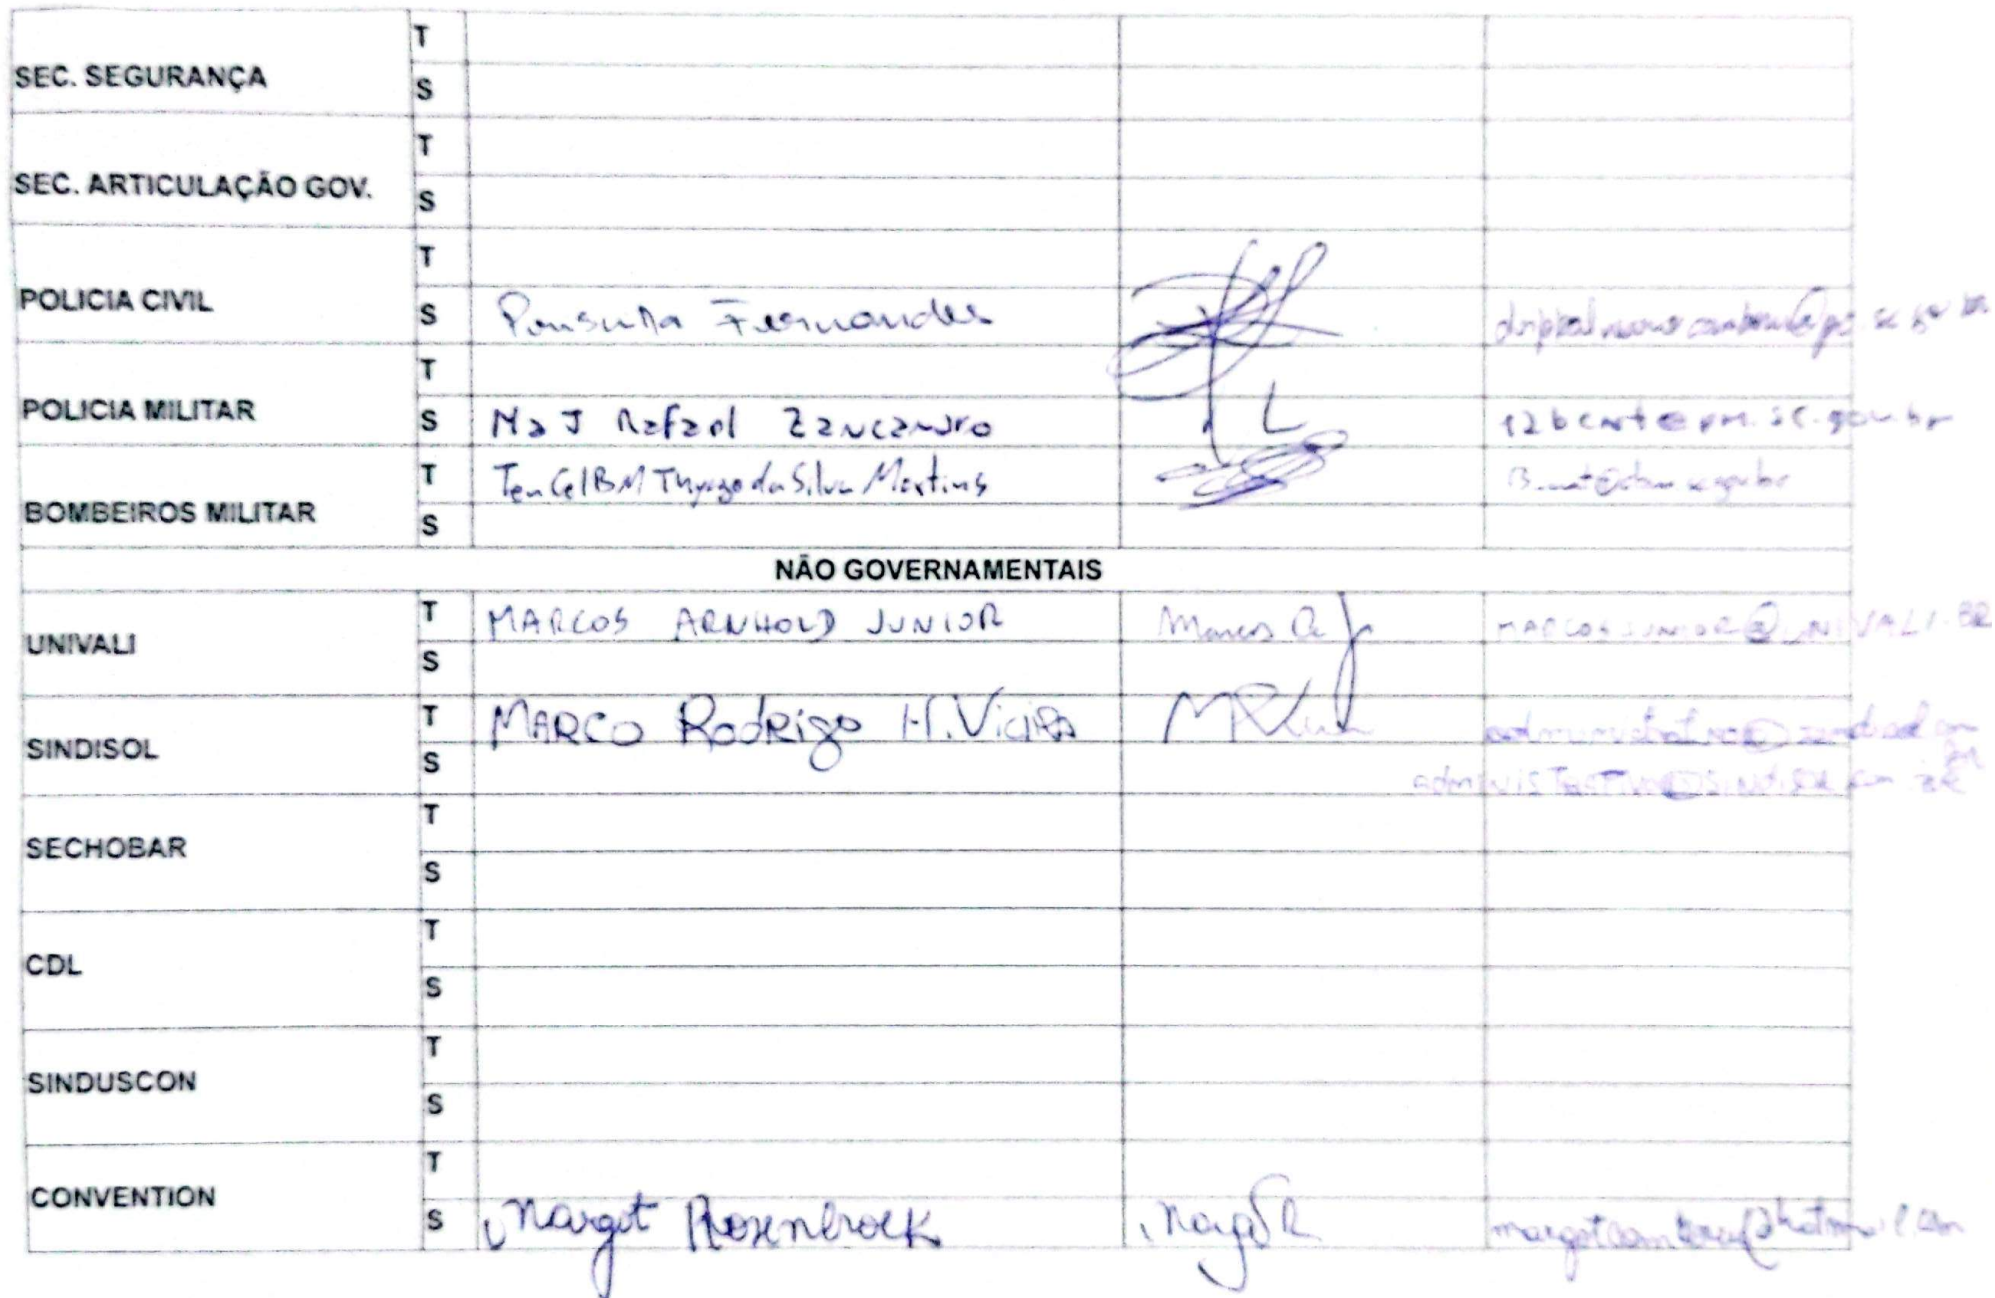 SEC. SEGURANÇA
T
S
SEC. ARTICULAÇÃO GOV.
T
S
POLICIA CIVIL
T
S Fernandes
POLICIA MILITAR
T
S Maj Rafael Zancanaro 12bcmt@pm.sc.gov.br
BOMBEIROS MILITAR
T Ten Cel BM Thyago da Silva Martins
S
NÃO GOVERNAMENTAIS
UNIVALI
T MARCOS ARNHOLD JUNIOR Marcos MARCOSJUNIOR@UNIVALI.BR
S
SINDISOL
T MARCO Rodrigo H. Vieira
S
SECHOBAR
T
S
CDL
T
S
SINDUSCON
T
S
CONVENTION
T
S Margot Rosenbrock Margot R